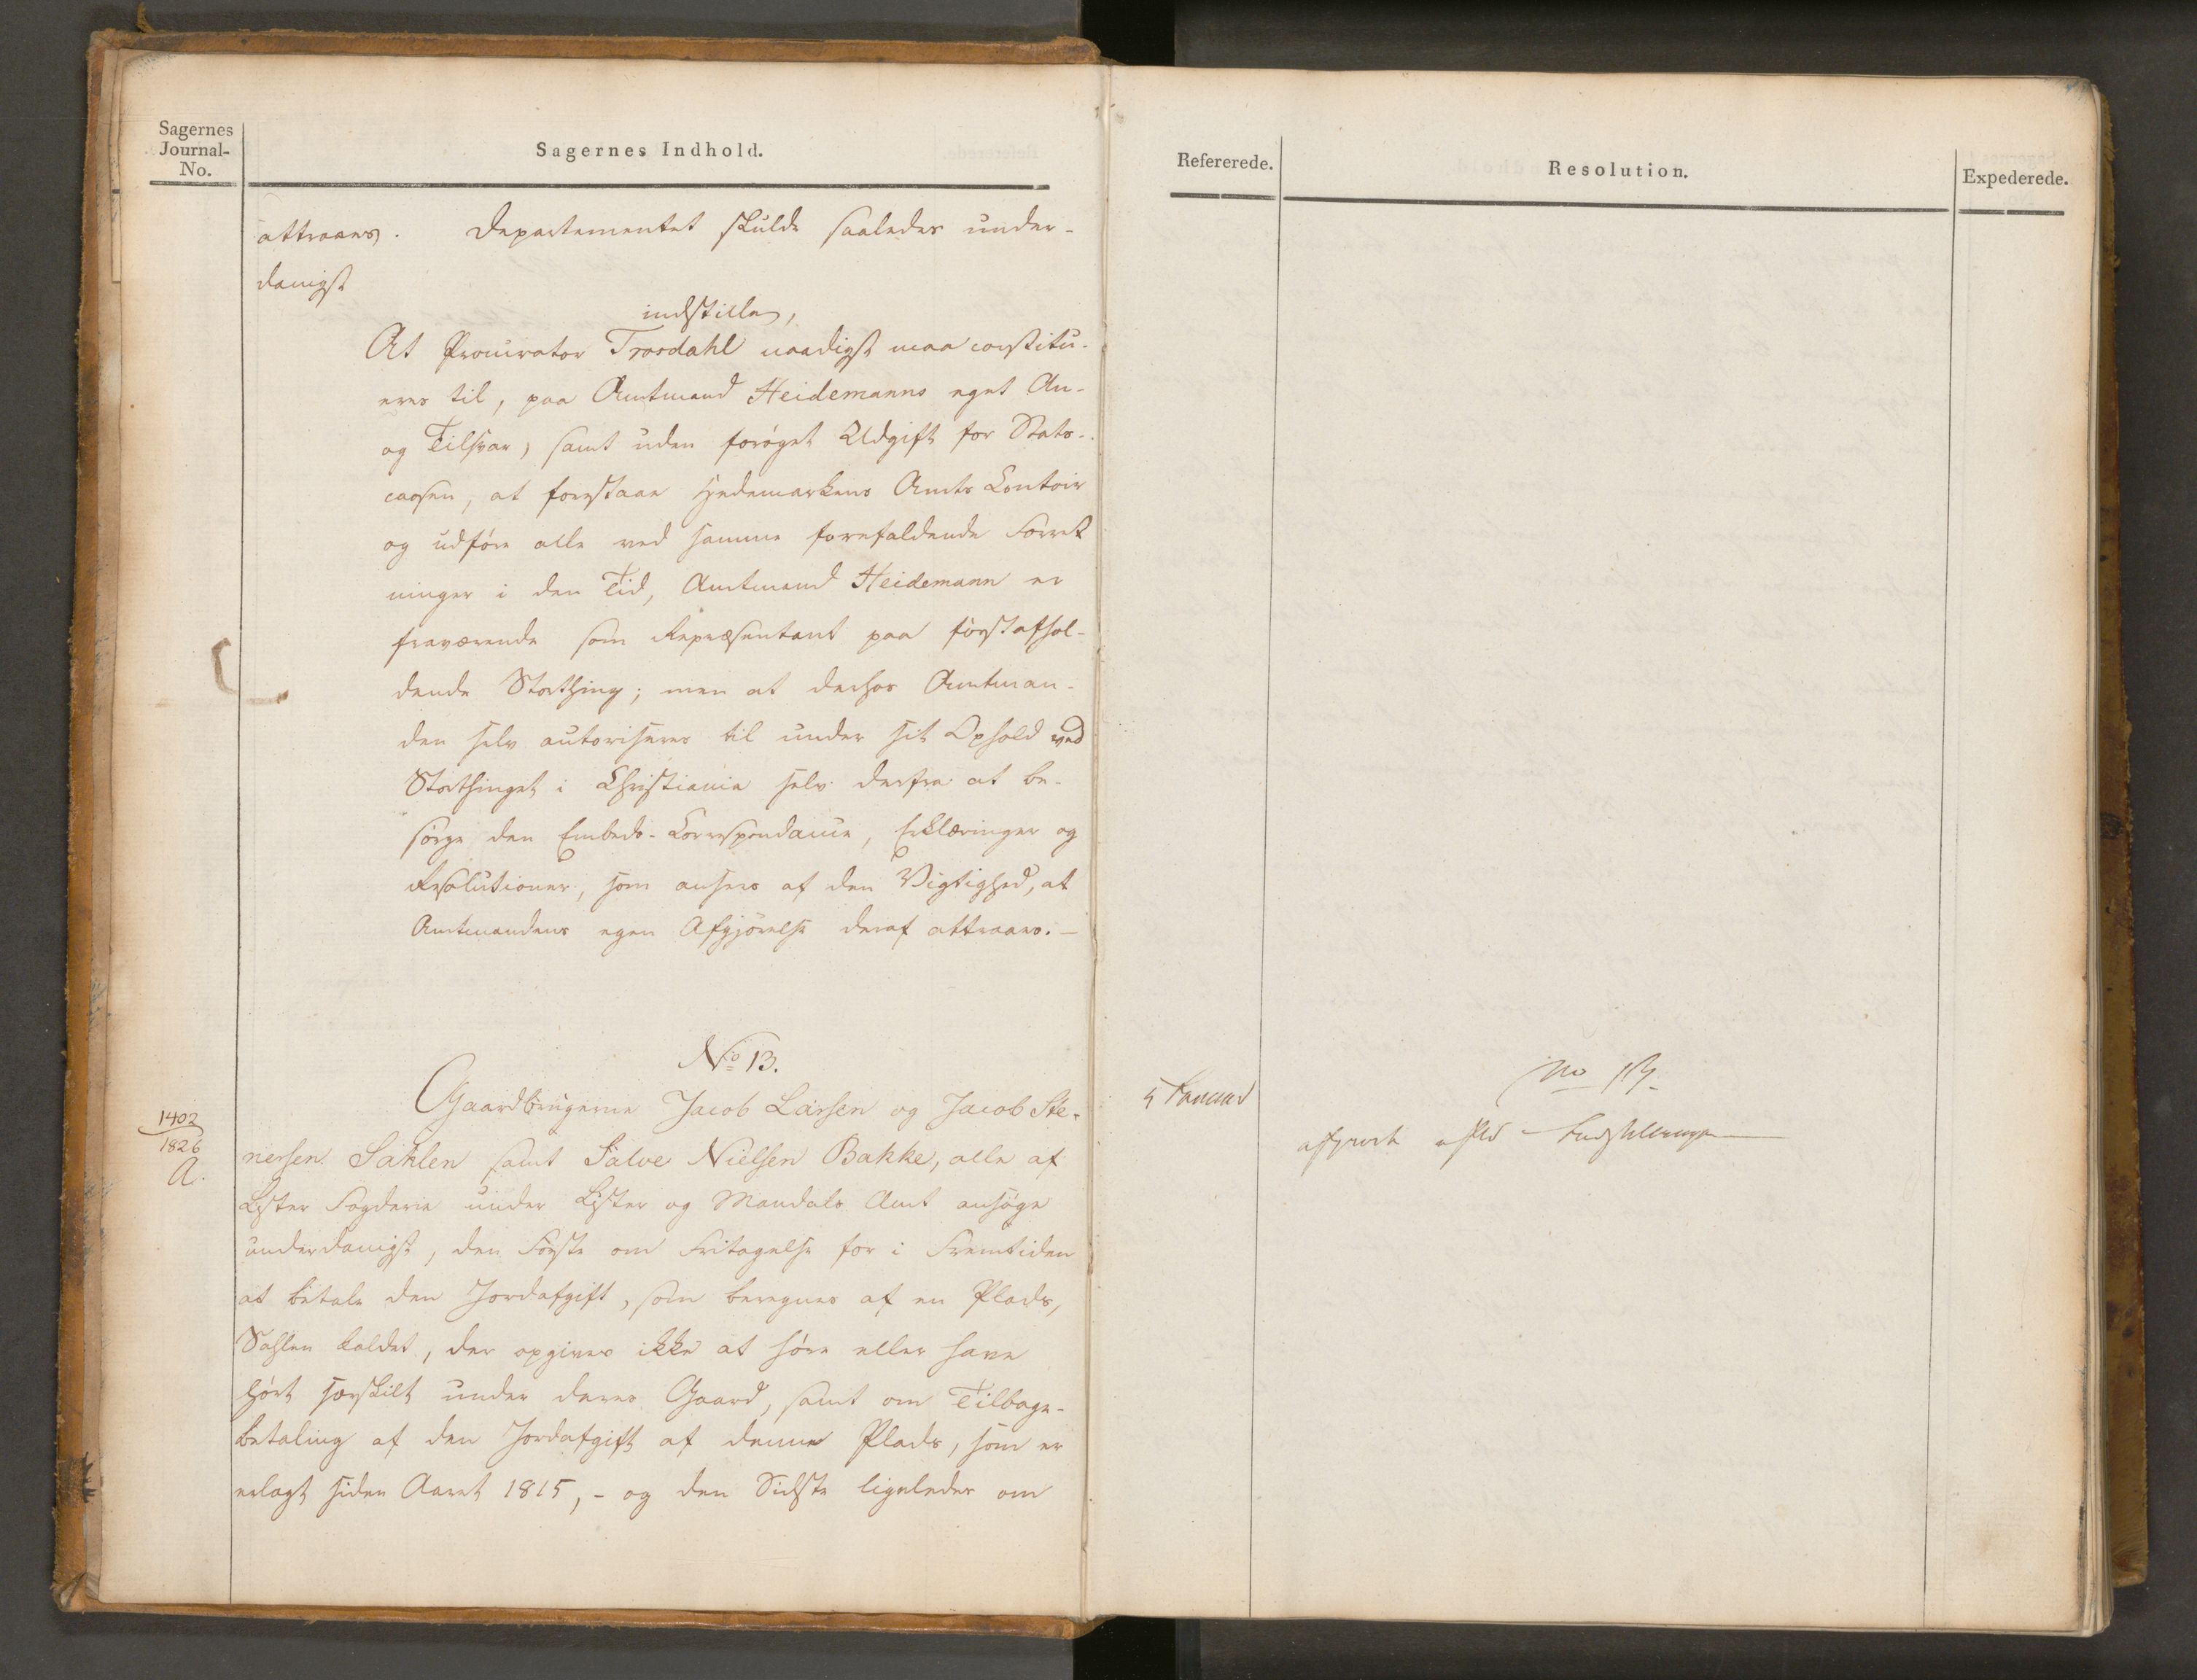 Sagernes
Journal-
No.
Sagernes Indhold.
attraaes. Departementet skulde saaledes under-
danigst
indstille,
At Procurator Trosdahl naadigst maa constitu-
eres til, paa Amtmand Heidemanns eget An-
og Tilsvar, samt uden forøget Udgift for Stats-
cassen, at forestaae Hedemarkens Amts Contoir
og udføre alle ved samme forefaldende Forret
ninger i den Tid, Amtmand Heidemann er
fraværende som Repræsentant paa førstafhol-
dende Storthing; men at derhos Amtman-
den selv autoriseres til under sit Ophold ved
Storthinget i Christiania selv derfra at be-
sørge den Embeds-Correspondance, Erklæringer og
Resolutioner, som ansees af den Vigtighed, at
Amtmandens egen Afgjørelse deraf attraaes. —
No 13.
1402
1826
A.
Gaardbrugerne Jacob Larsen og Jacob Ste-
nersen Sahlen samt Salve Nielsen Bakke, alle af
Lister Fogderie under Lister og Mandals Amt ansøge
underdanigst, den Første om Fritagelse for i Fremtiden
at betale den Jordafgift, som beregnes af en Plads,
Sahlen kaldet, der opgives ikke at høre eller have
hørt særskilt under deres Gaard, samt om Tilbage-
betaling af den Jordafgift af denne Plads, som er
erlagt siden Aaret 1815, - og den Sidste ligeledes om
Refererede.
Resolution.
Expederede.
No 13
afgjort efter Indstillingen